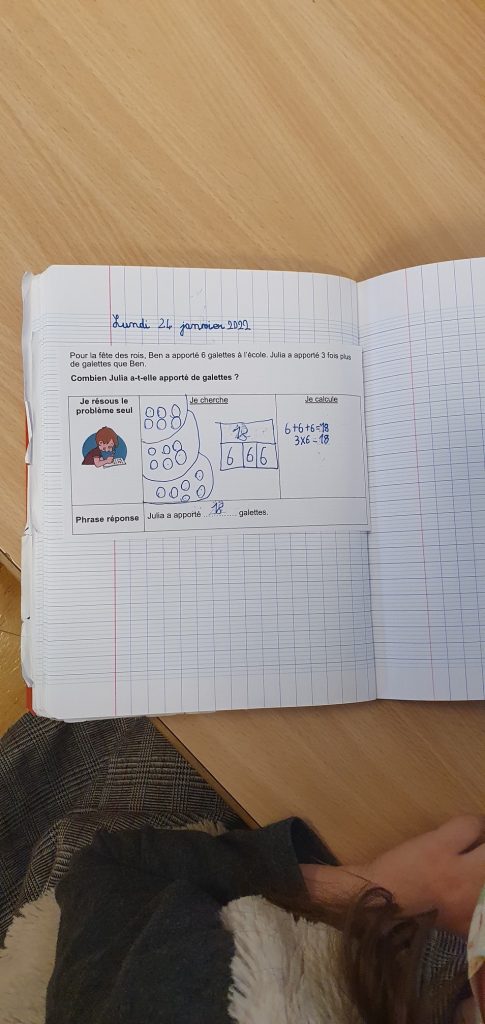 Lundi 24 janvier 2022
Pour la fête des rois, Ben a apporté 6 galettes à l'école. Julia a apporté 3 fois plus
de galettes que Ben.
Combien Julia a-t-elle apporté de galettes ?
Je résous le
problème seul
Je cherche
18
6 6 6
Je calcule
6+6+6=18
3x6=18
Phrase réponse
Julia a apporté ...18... galettes.